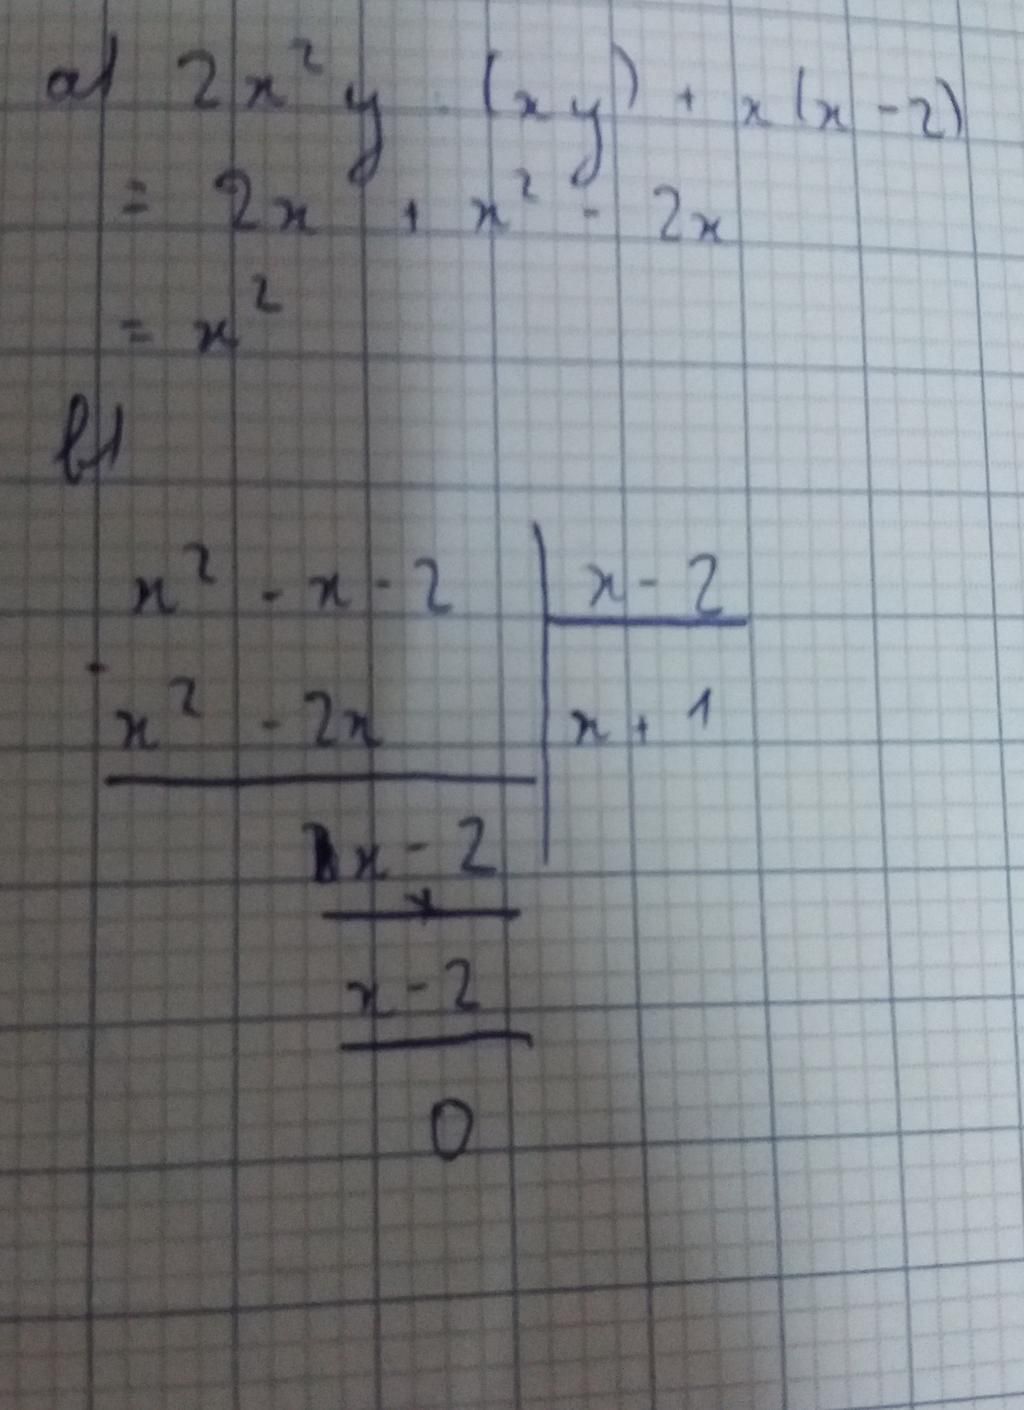 a) 2x² y : (xy) + x(x - 2)
= 2x + x² - 2x
= x²
b)
x² - x - 2 | x - 2
-
x² - 2x | x + 1
x - 2
x - 2
0